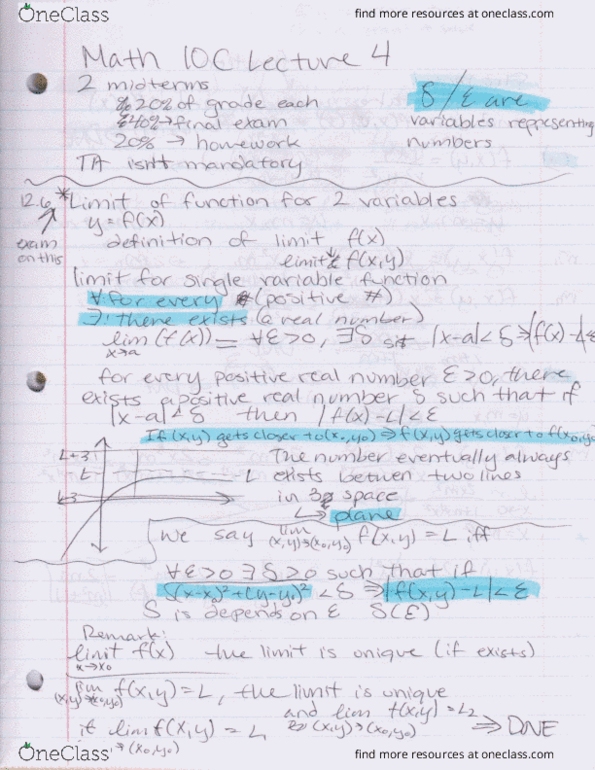 OneClass
find more resources at oneclass.com
Math 10C Lecture 4
2 midterms
20% of grade each
40% → final exam
20% → homework
TA isnt mandatory
δ/ε are
variables representing
numbers
12.6 * Limit of function for 2 variables
y = f(x)
exam
on this
definition of limit f(x)
limit f(x,y)
limit for single variable function
∀ for every # (positive #)
∃ : there exists (a real number)
lim (f(x)) = ∀ε>0, ∃δ s.t. |x-a|<δ ⇒ |f(x)-
x→a
for every positive real number ε>0, there
exists a positive real number δ such that if
|x-a|<δ then |f(x)-L|<ε
If (x,y) gets closer to (x₀,y₀) ⇒ f(x,y) gets closer to f(x₀,y₀)
L+3
L
L-3
L
The number eventually always
exists betwen two lines
in 3 space
↳ plane
we say lim f(x,y) = L iff
(x,y)→(x₀,y₀)
∀ε>0 ∃δ>0 such that if
√(x-x₀)²+(y-y₀)² <δ ⇒ |f(x,y)-L|<ε
δ is depends on ε δ(ε)
Remark:
limit f(x) the limit is unique (if exists)
x→x₀
lim f(x,y) = L, the limit is unique
(x,y)→(x₀,y₀)
if lim f(x,y) = L, and lim f(x,y) = L₂ ⇒ DNE
→(x₀,y₀) (x,y)→(x₀,y₀)
OneClass
find more resources at oneclass.com